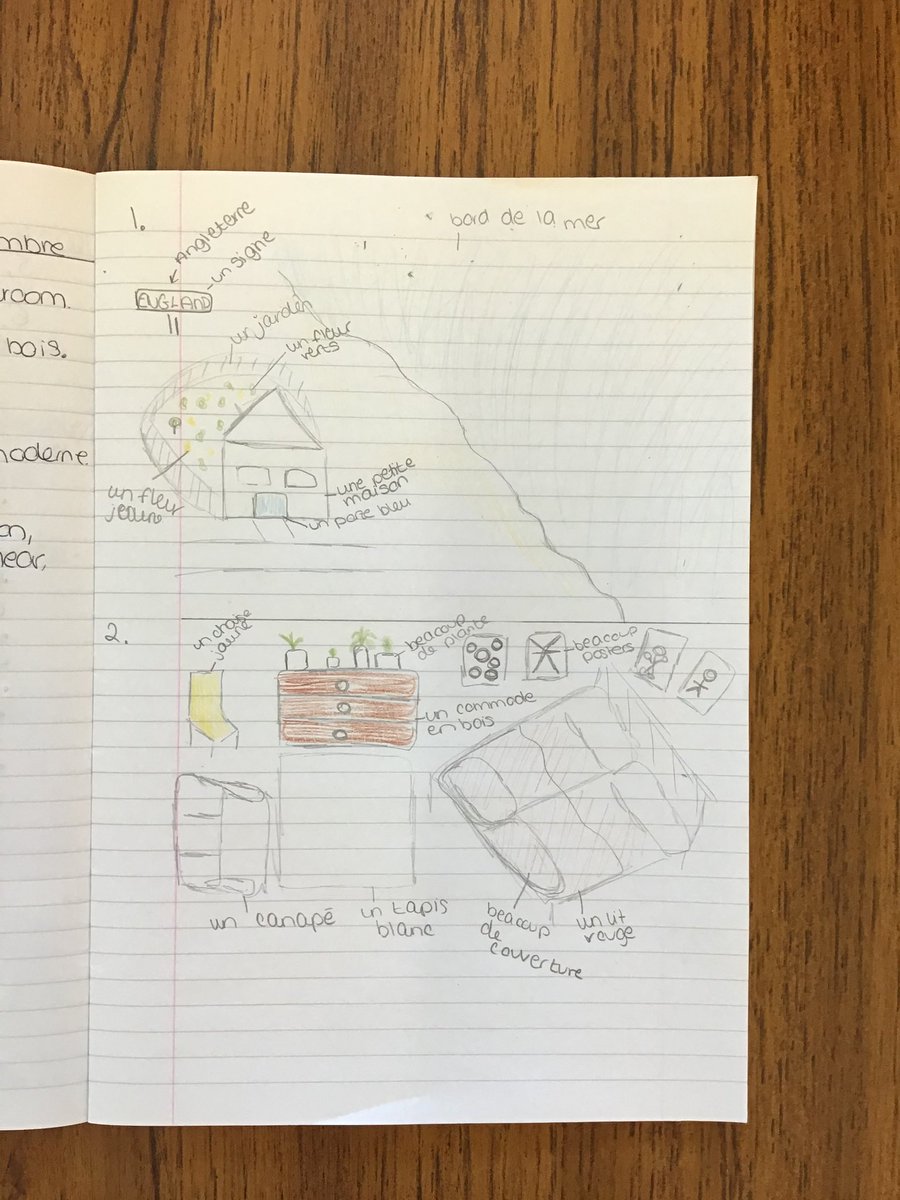 mbre
room.
bois.
moderne
on,
near,
1.
bord de la mer
Angleterre
ENGLAND
un signe
un jarden
un fleur
verts
un fleur
jeaune
une petite
maison
un porte bleu
2.
un chaise
jaune
beacoup
de plante
beacoup
posters
OK
un commode
en bois
un canapé
un tapis
blanc
beacoup
de
couverture
un lit
rouge